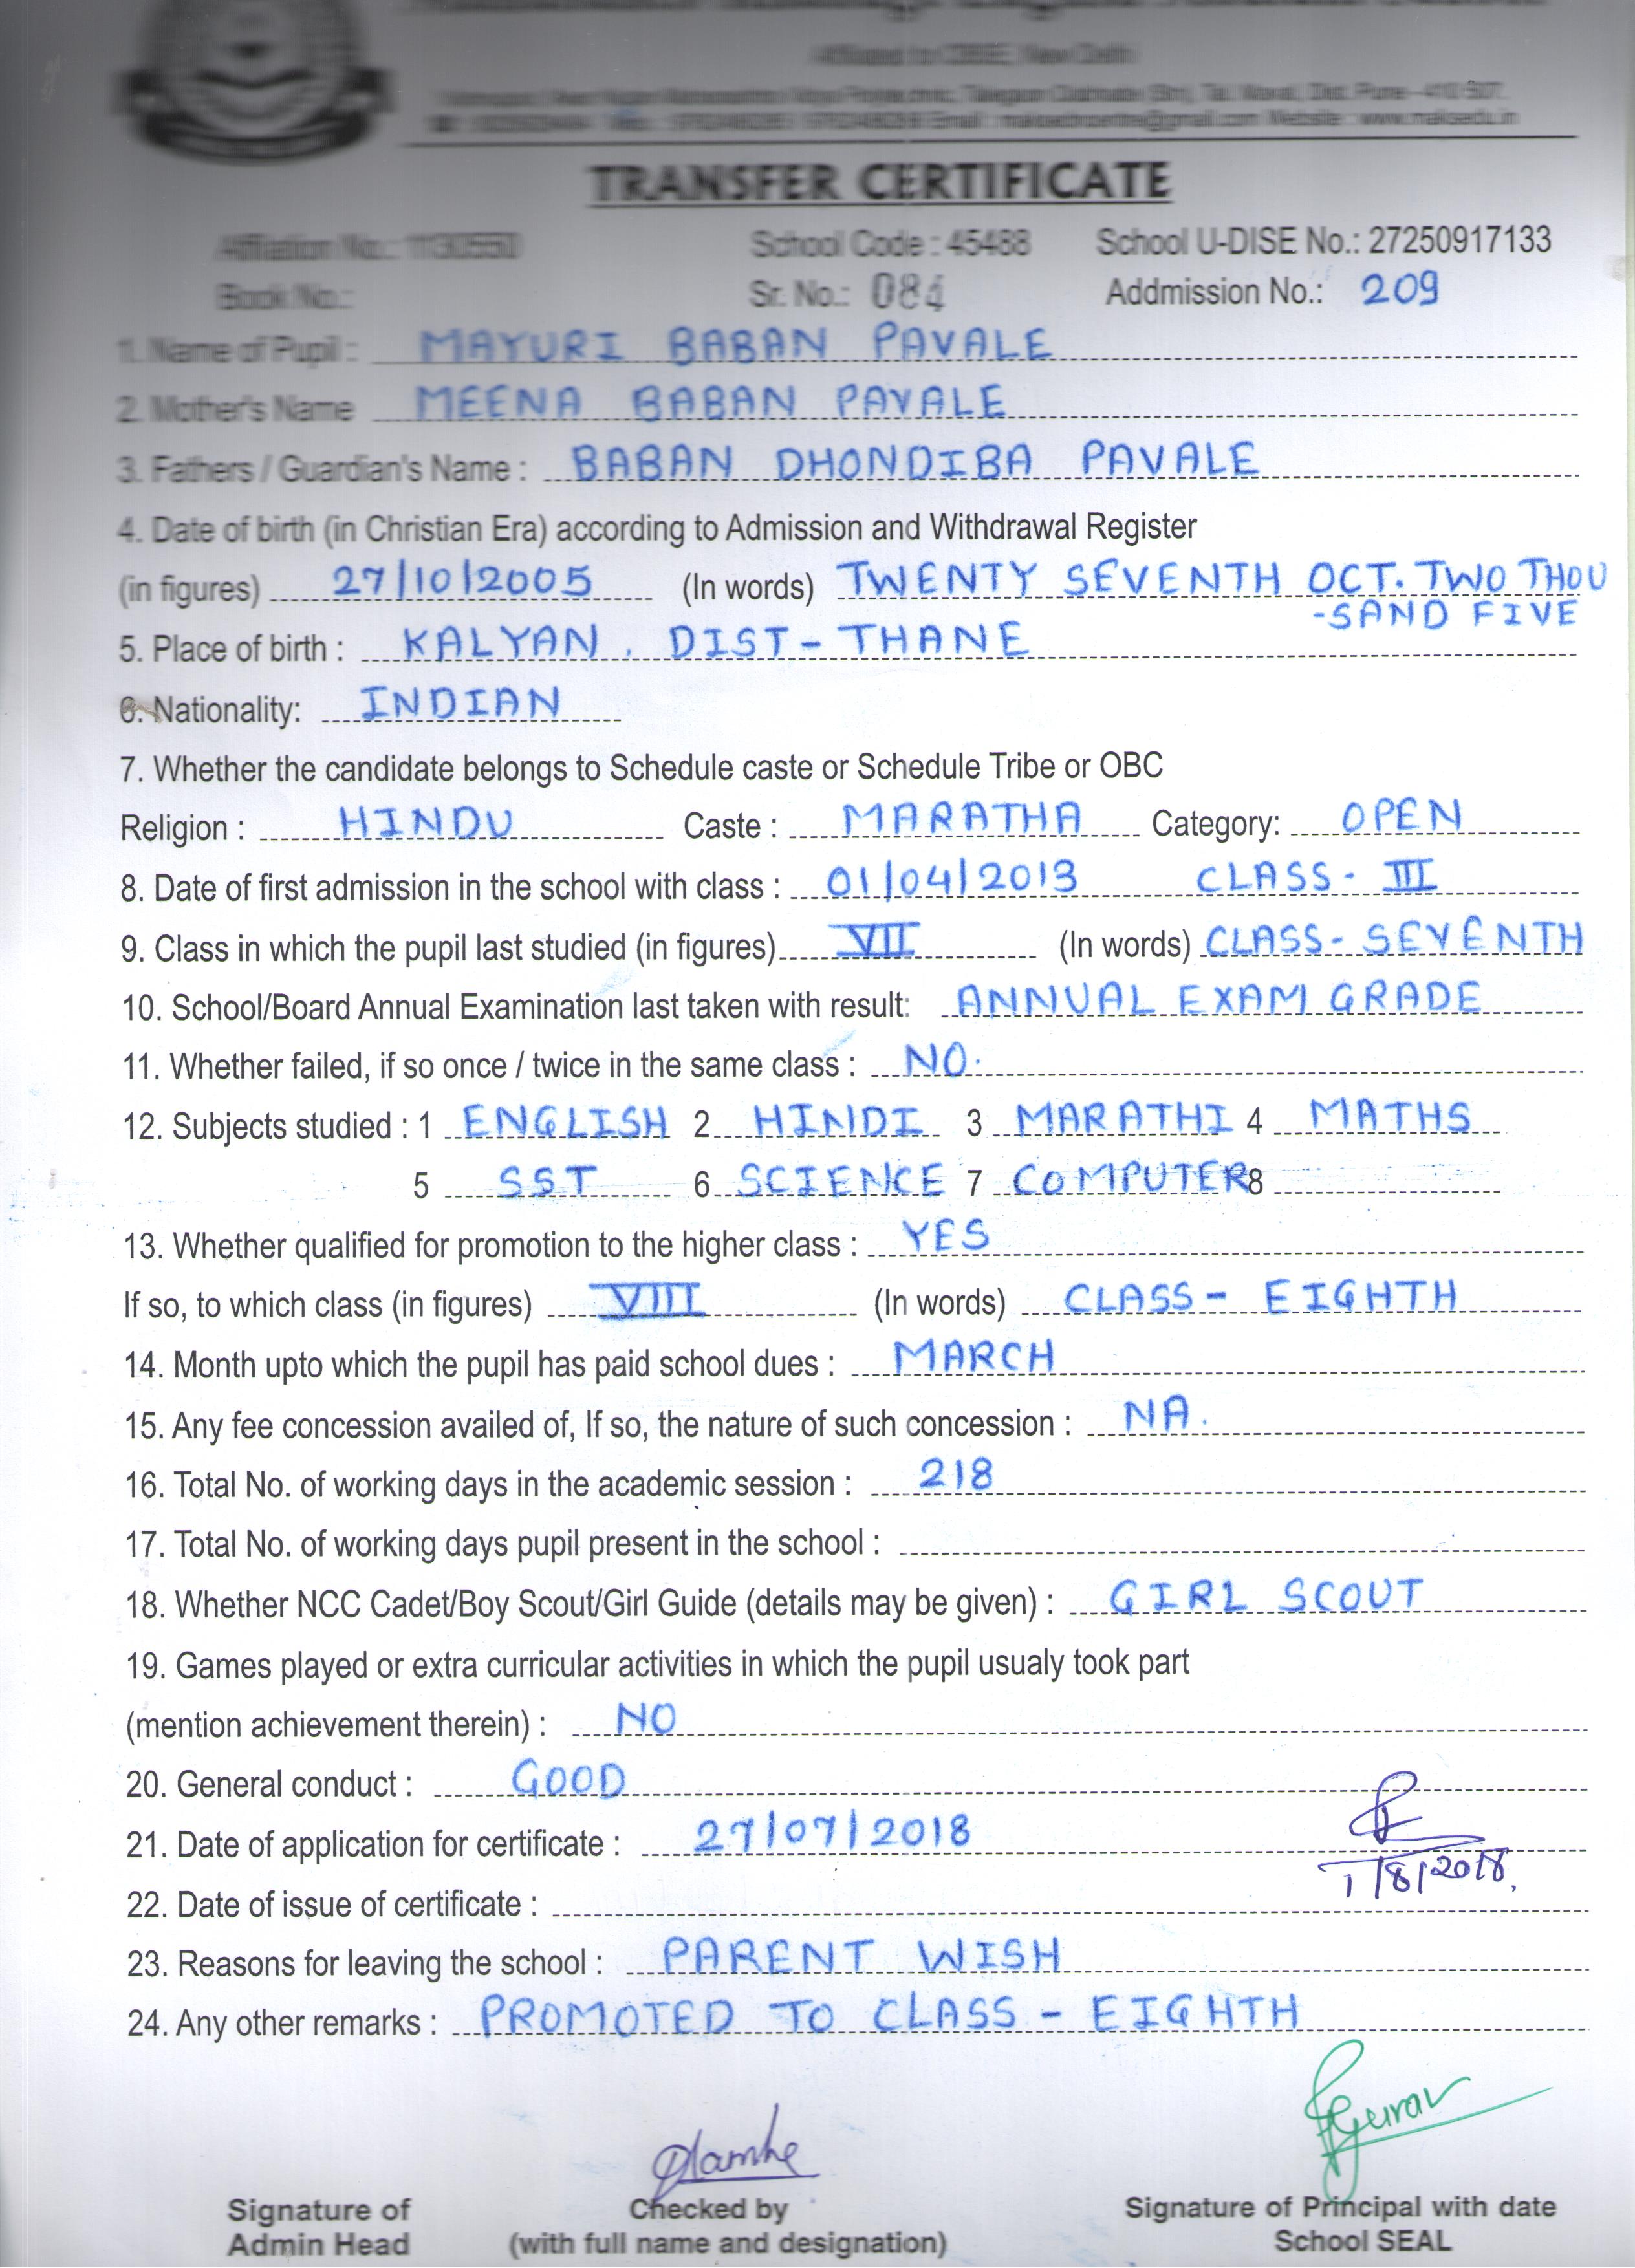 Affiliated to CBSE, New Delhi
TRANSFER CERTIFICATE
Affiliation No.: 1130550 School Code : 45488 School U-DISE No.: 27250917133
Book No.: Sr. No.: 084 Addmission No.: 209
1. Name of Pupil : MAYURI BABAN PAVALE
2. Mother's Name MEENA BABAN PAVALE
3. Fathers / Guardian's Name : BABAN DHONDIBA PAVALE
4. Date of birth (in Christian Era) according to Admission and Withdrawal Register
(in figures) 27/10/2005 (In words) TWENTY SEVENTH OCT. TWO THOU
-SAND FIVE
5. Place of birth : KALYAN, DIST - THANE
6. Nationality: INDIAN
7. Whether the candidate belongs to Schedule caste or Schedule Tribe or OBC
Religion : HINDU Caste : MARATHA Category: OPEN
8. Date of first admission in the school with class : 01/04/2013 CLASS - III
9. Class in which the pupil last studied (in figures) VII (In words) CLASS - SEVENTH
10. School/Board Annual Examination last taken with result: ANNUAL EXAM GRADE
11. Whether failed, if so once / twice in the same class : NO.
12. Subjects studied : 1 ENGLISH 2 HINDI 3 MARATHI 4 MATHS
5 SST 6 SCIENCE 7 COMPUTER 8
13. Whether qualified for promotion to the higher class : YES
If so, to which class (in figures) VIII (In words) CLASS - EIGHTH
14. Month upto which the pupil has paid school dues : MARCH
15. Any fee concession availed of, If so, the nature of such concession : NA.
16. Total No. of working days in the academic session : 218
17. Total No. of working days pupil present in the school :
18. Whether NCC Cadet/Boy Scout/Girl Guide (details may be given) : GIRL SCOUT
19. Games played or extra curricular activities in which the pupil usualy took part
(mention achievement therein) : NO
20. General conduct : GOOD
21. Date of application for certificate : 27/07/2018
1/8/2018,
22. Date of issue of certificate :
23. Reasons for leaving the school : PARENT WISH
24. Any other remarks : PROMOTED TO CLASS - EIGHTH
Signature of Checked by Signature of Principal with date
Admin Head (with full name and designation) School SEAL